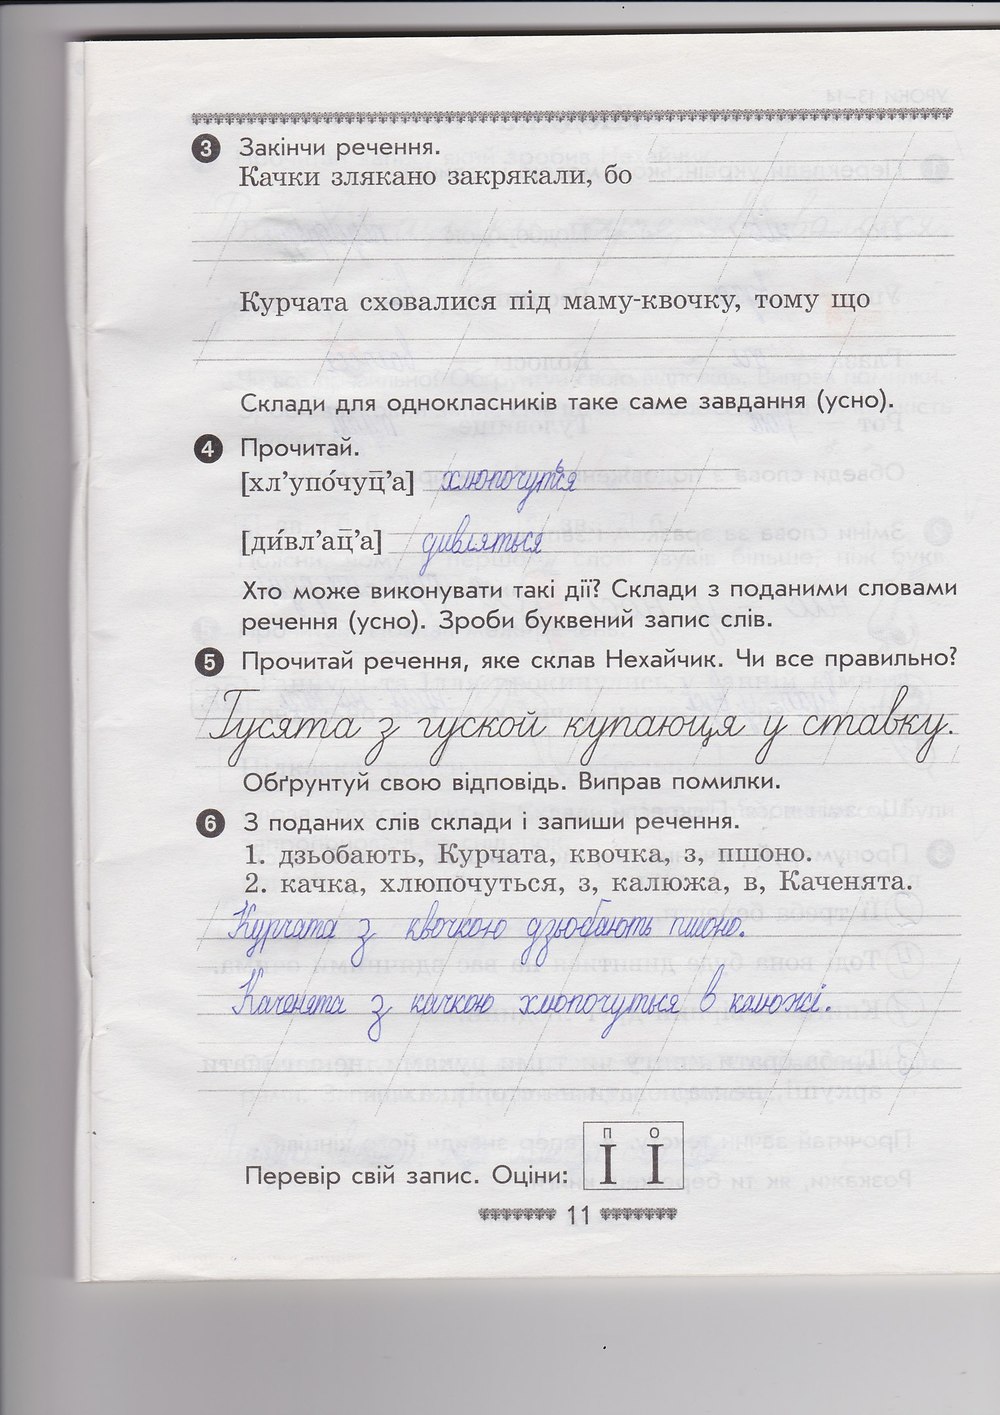 3 Закінчи речення.
Качки злякано закрякали, бо
Курчата сховалися під маму-квочку, тому що
Склади для однокласників таке саме завдання (усно).
4 Прочитай.
[хл’упо́чуц̄’а] хлюпочуться
[ди́вл’ац̄’а] дивляться
Хто може виконувати такі дії? Склади з поданими словами
речення (усно). Зроби буквений запис слів.
5 Прочитай речення, яке склав Нехайчик. Чи все правильно?
Гусята з гуской купаюця у ставку.
Обґрунтуй свою відповідь. Виправ помилки.
6 З поданих слів склади і запиши речення.
1. дзьобають, Курчата, квочка, з, пшоно.
2. качка, хлюпочуться, з, калюжа, в, Каченята.
Курчата з квочкою дзьобають пшоно.
Каченята з качкою хлюпочуться в калюжі.
П О
Перевір свій запис. Оціни: І І
11